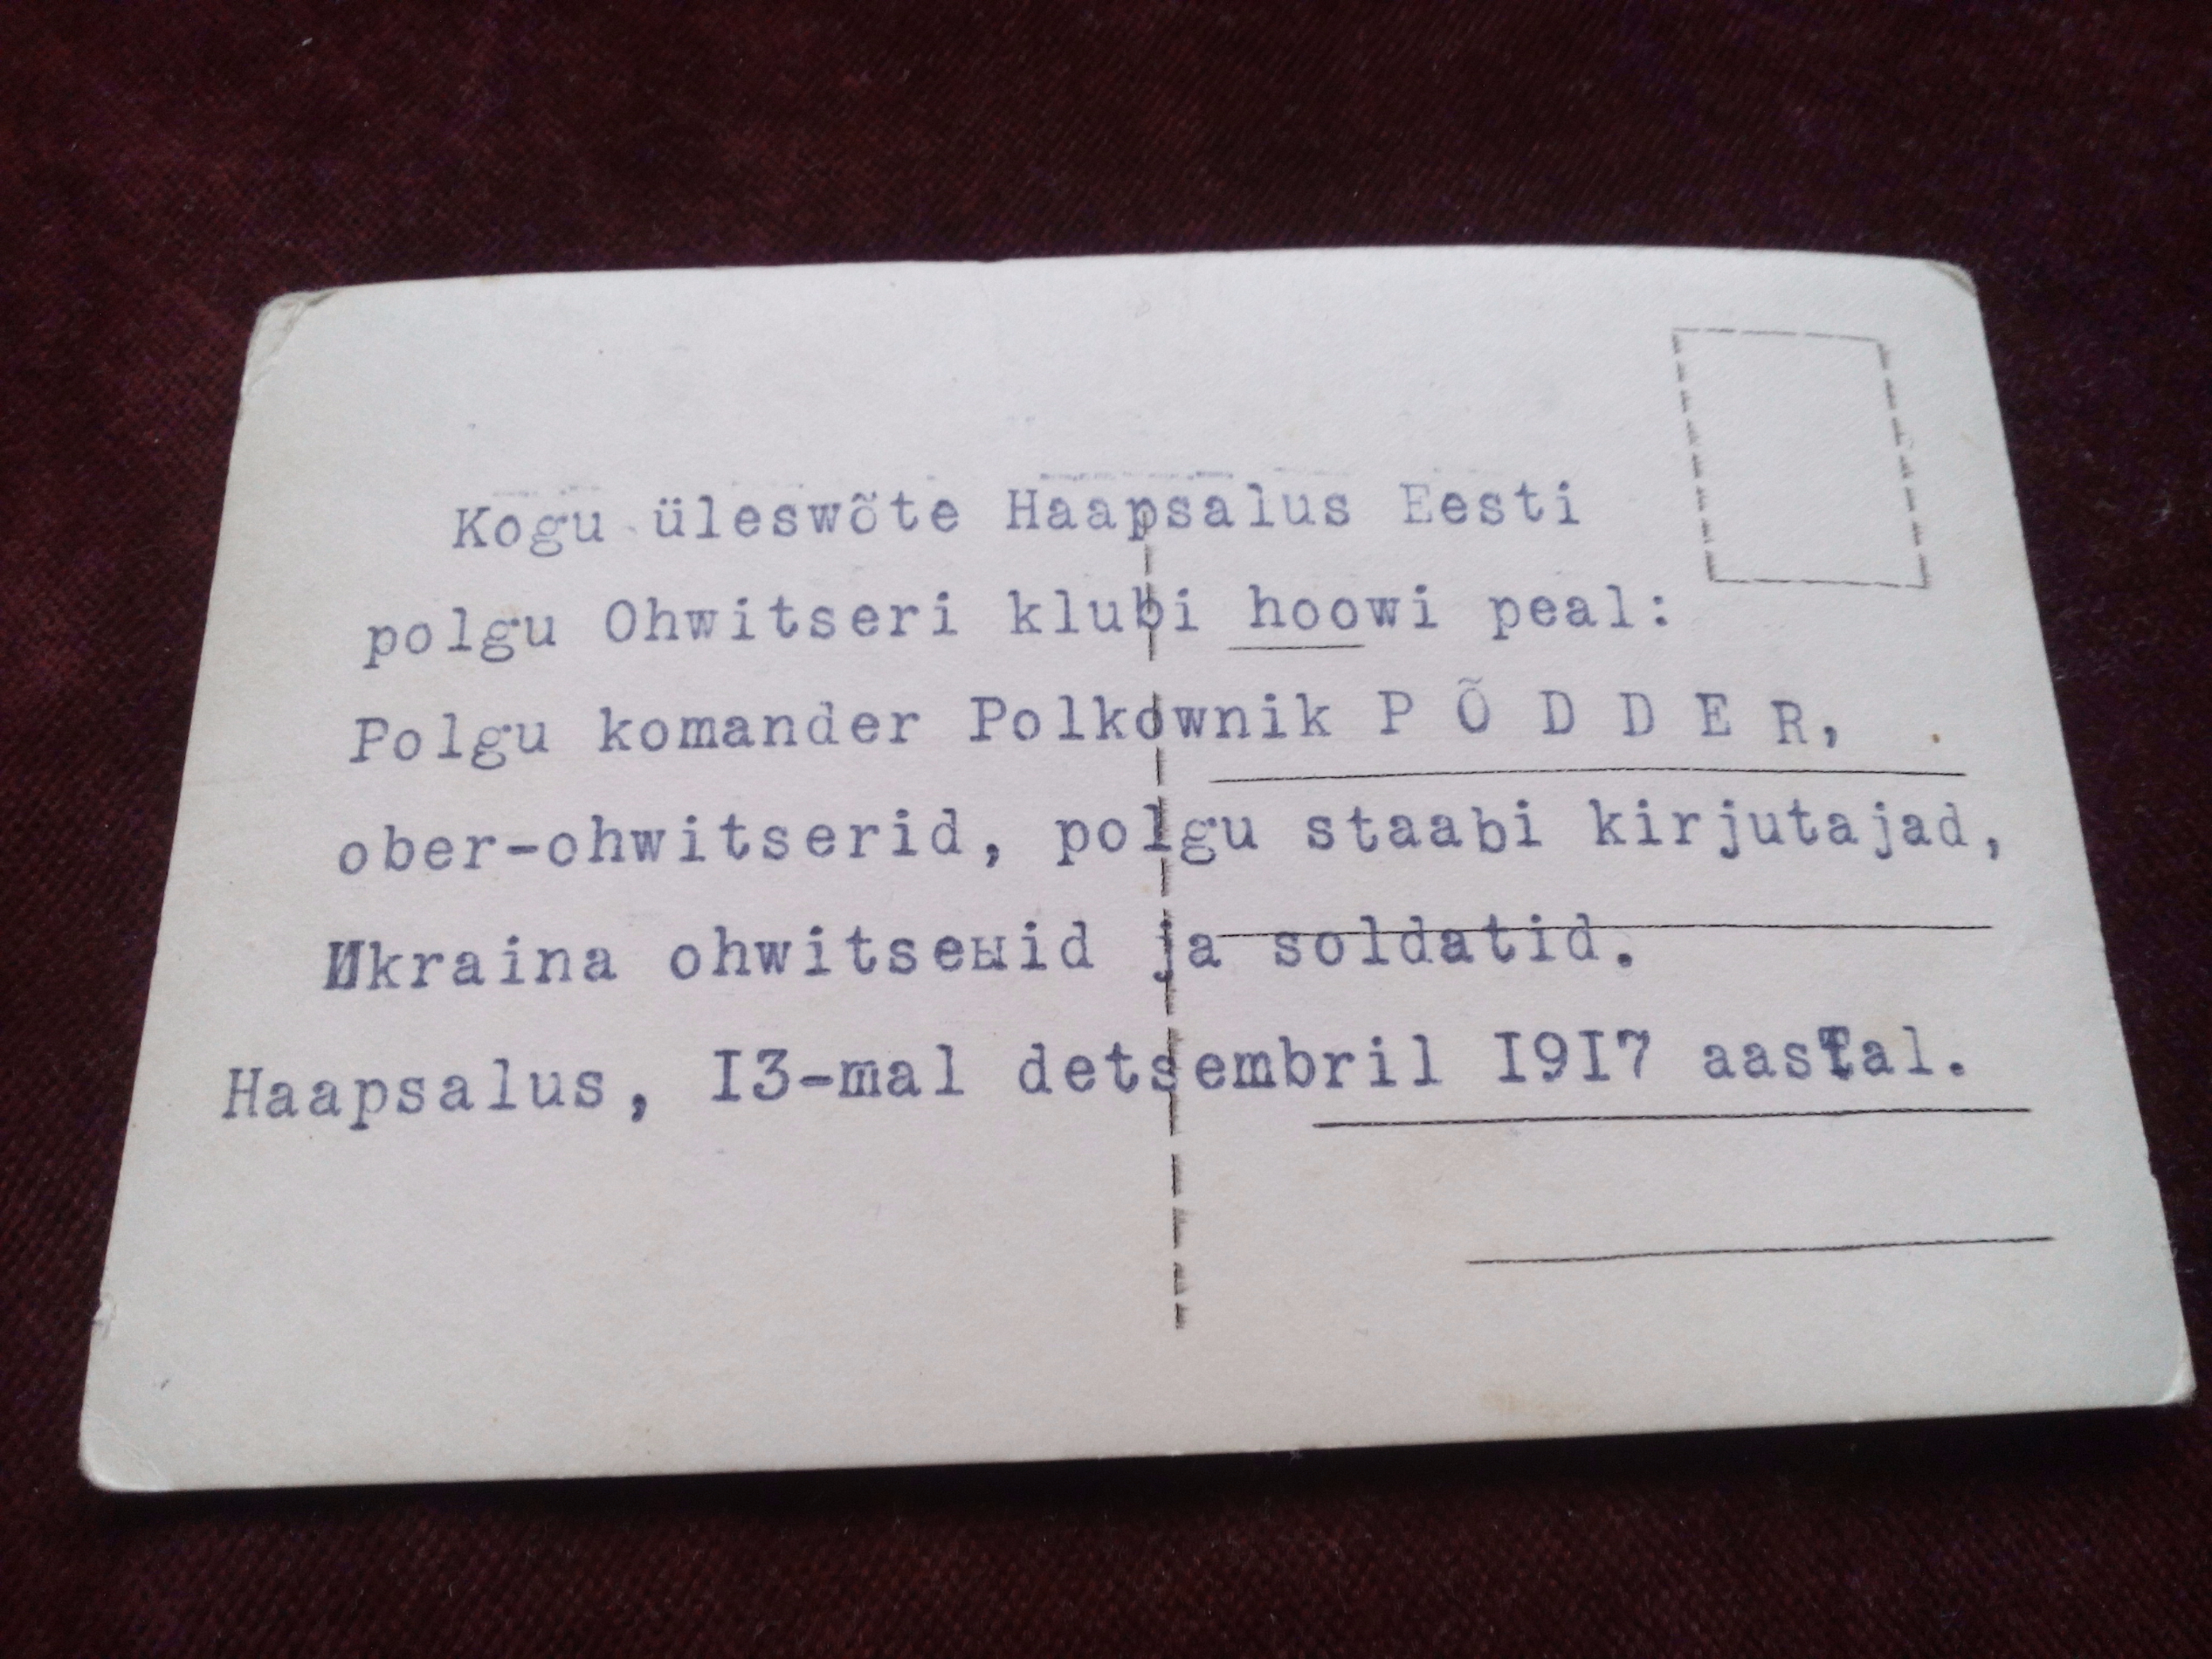 Kogu üleswõte Haapsalus Eesti
polgu Ohwitseri klubi hoowi peal:
Polgu komander Polkownik P Õ D D E R,
ober-ohwitserid, polgu staabi kirjutajad,
Ukraina ohwitserid ja soldatid.
Haapsalus, I3-mal detsembril I9I7 aastal.